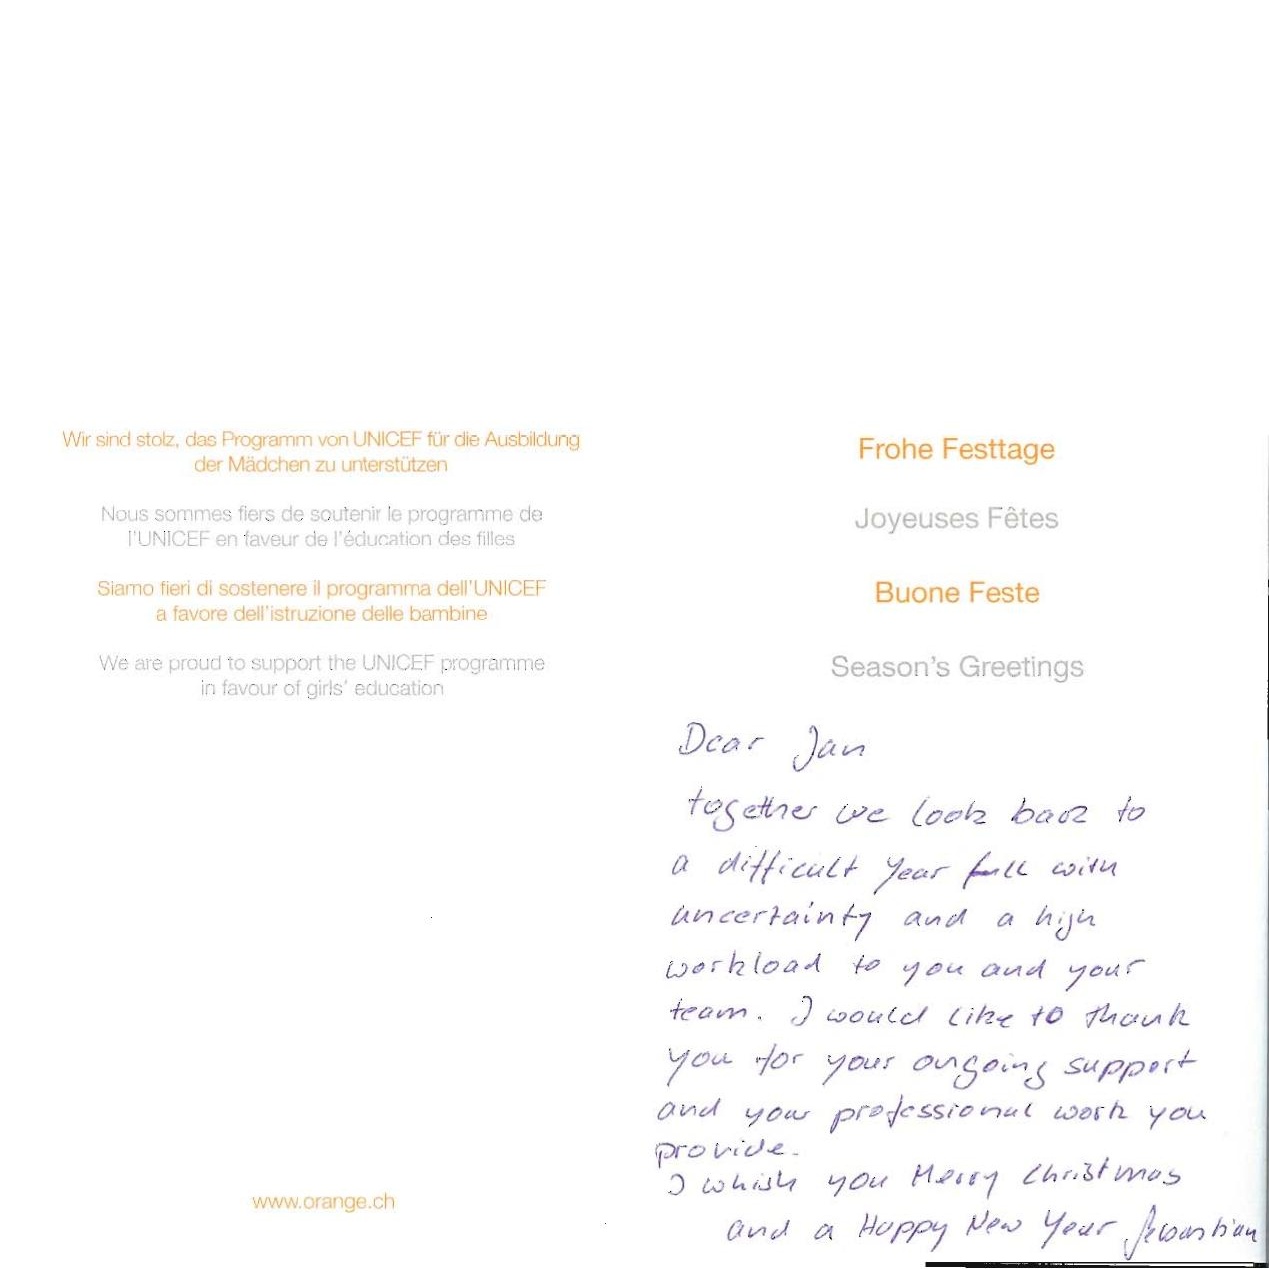 Wir sind stolz, das Programm von UNICEF für die Ausbildung
der Mädchen zu unterstützen
Nous sommes fiers de soutenir le programme de
l'UNICEF en faveur de l'éducation des filles
Siamo fieri di sostenere il programma dell'UNICEF
a favore dell'istruzione delle bambine
We are proud to support the UNICEF programme
in favour of girls' education
www.orange.ch
Frohe Festtage
Joyeuses Fêtes
Buone Feste
Season's Greetings
Dear Jan
together we look back to
a difficult year full with
uncertainty and a high
workload to you and your
team. I would like to thank
you for your ongoing support
and your professional work you
provide.
I whish you Merry Christmas
and a Happy New Year Sebastian